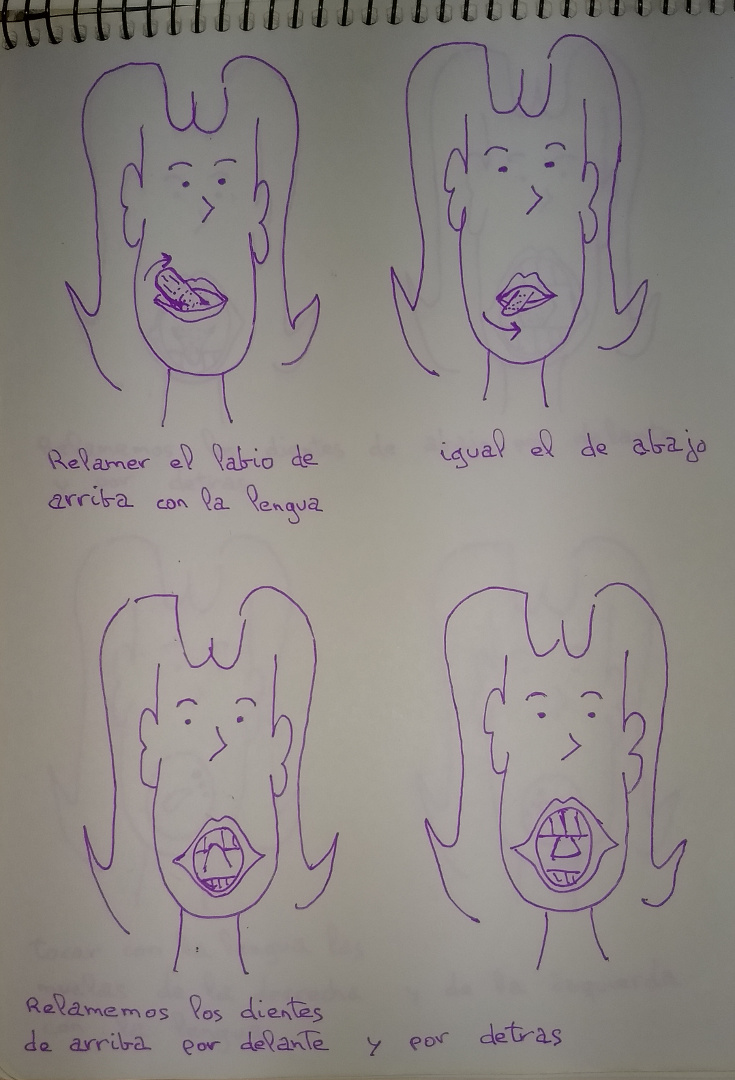 Relamer el labio de
arriba con la lengua
igual el de abajo
Relamemos los dientes
de arriba por delante y por detras